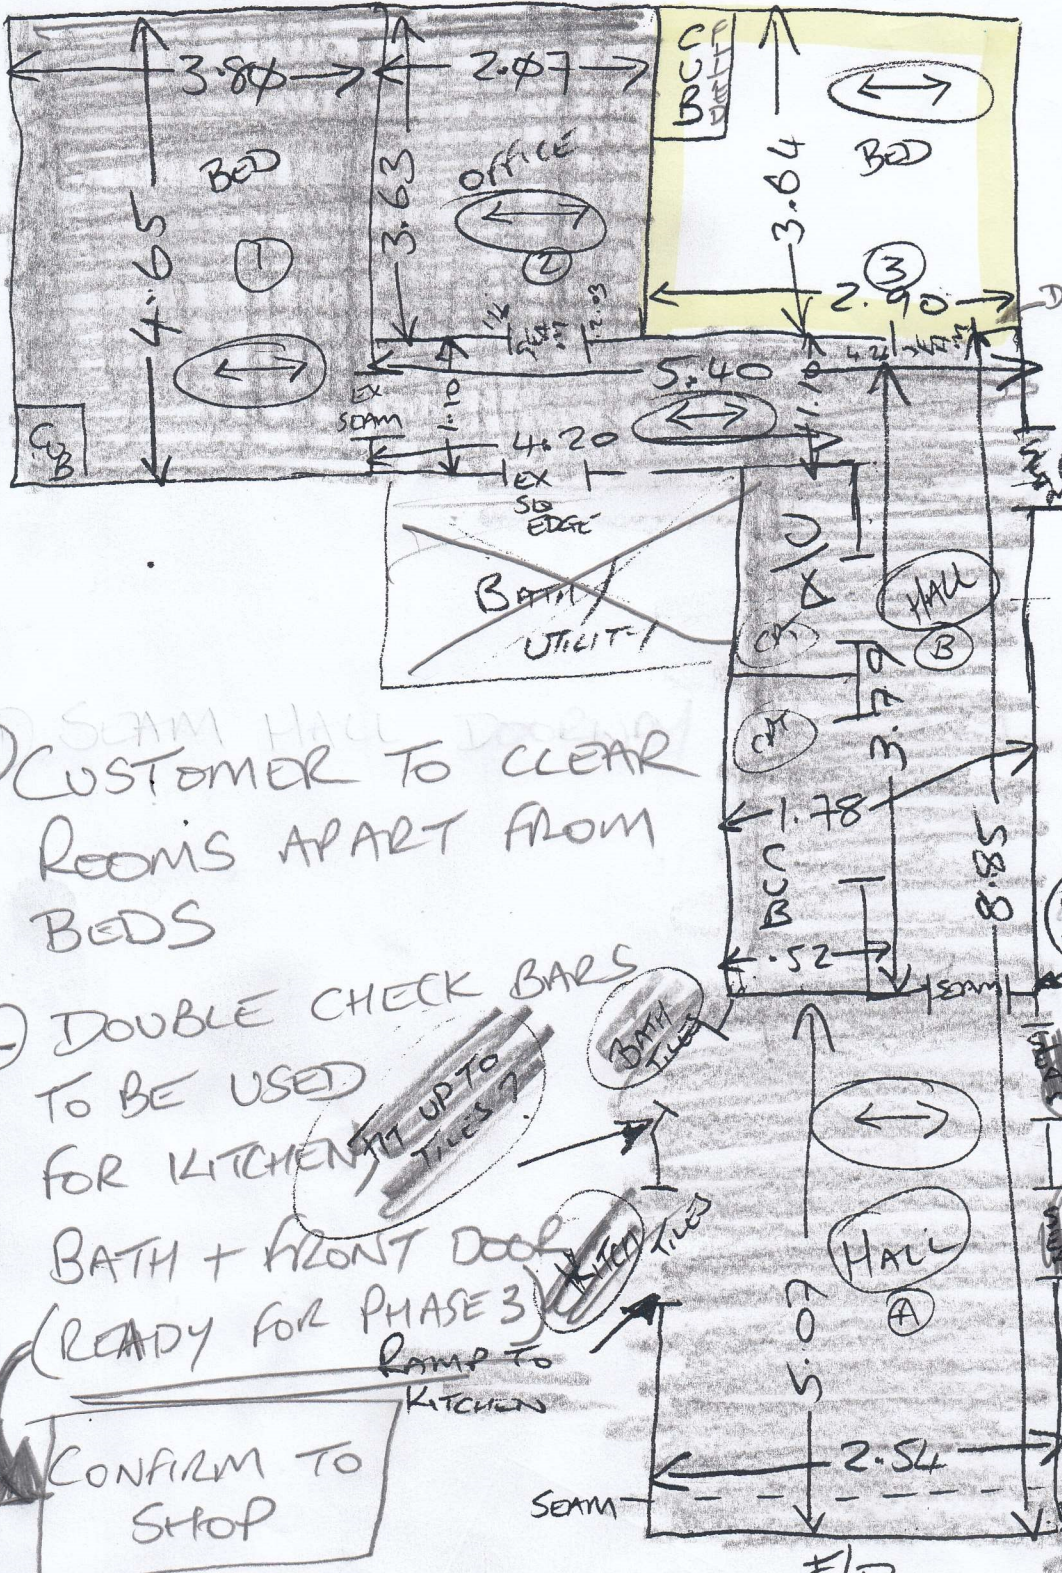 3.80
2.07
CUB
BED
4.65
1
3.63
OFFICE
2
3.64
BED
3
2.90
CUB
EX
SEAM
1.10
5.40
1.10
4.20
EX
SO
EDGE
BATH/
UTILITY
HALL
B
3.79
1.78
CUB
.52
8.85
SEAM
SEAM HALL DOORWAY
CUSTOMER TO CLEAR
ROOMS APART FROM
BEDS
DOUBLE CHECK BARS
TO BE USED
FOR KITCHEN
BATH + FRONT DOOR
(READY FOR PHASE 3)
UP TO
TILES?
BATH
TILES
KITCH TILES
RAMP TO
KITCHEN
CONFIRM TO
SHOP
HALL
A
5.07
2.54
SEAM
F/D